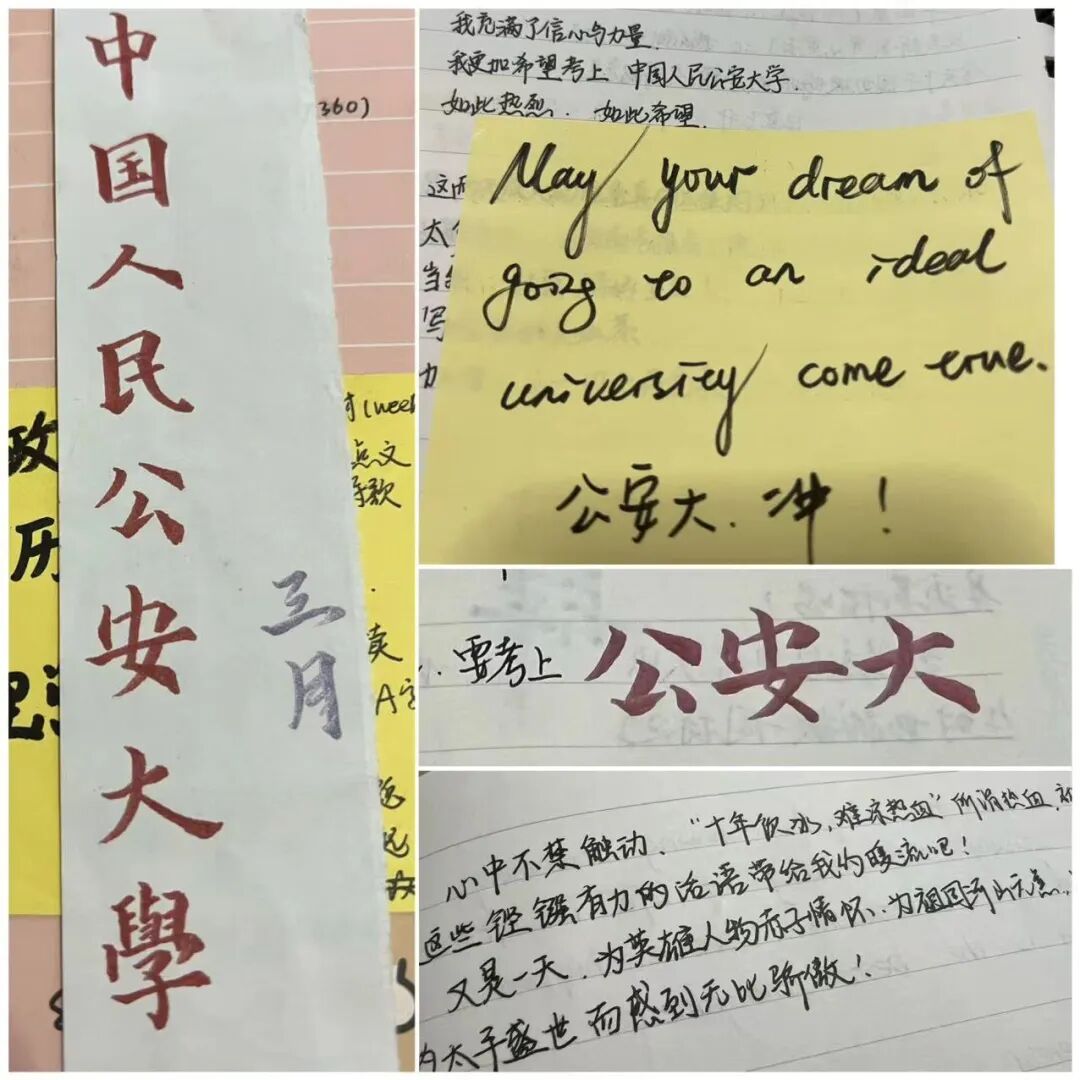 中国人民公安大學
三月
360)
政
历
点文
我充满了信心与力量.
我更加希望考上 中国人民公安大学.
如此热烈. 如此希望.
这
太
当
写
力
May your dream of
going to an ideal
university come true.
公安大.冲!
要考上 公安大
心中不禁触动. "十年饮冰,难凉热血"所谓热血,
这些铿锵有力的话语带给我的暖流吧!
又是一天.为英雄人物赤子情怀.为祖国河山无恙..
为太平盛世而感到无比骄傲!